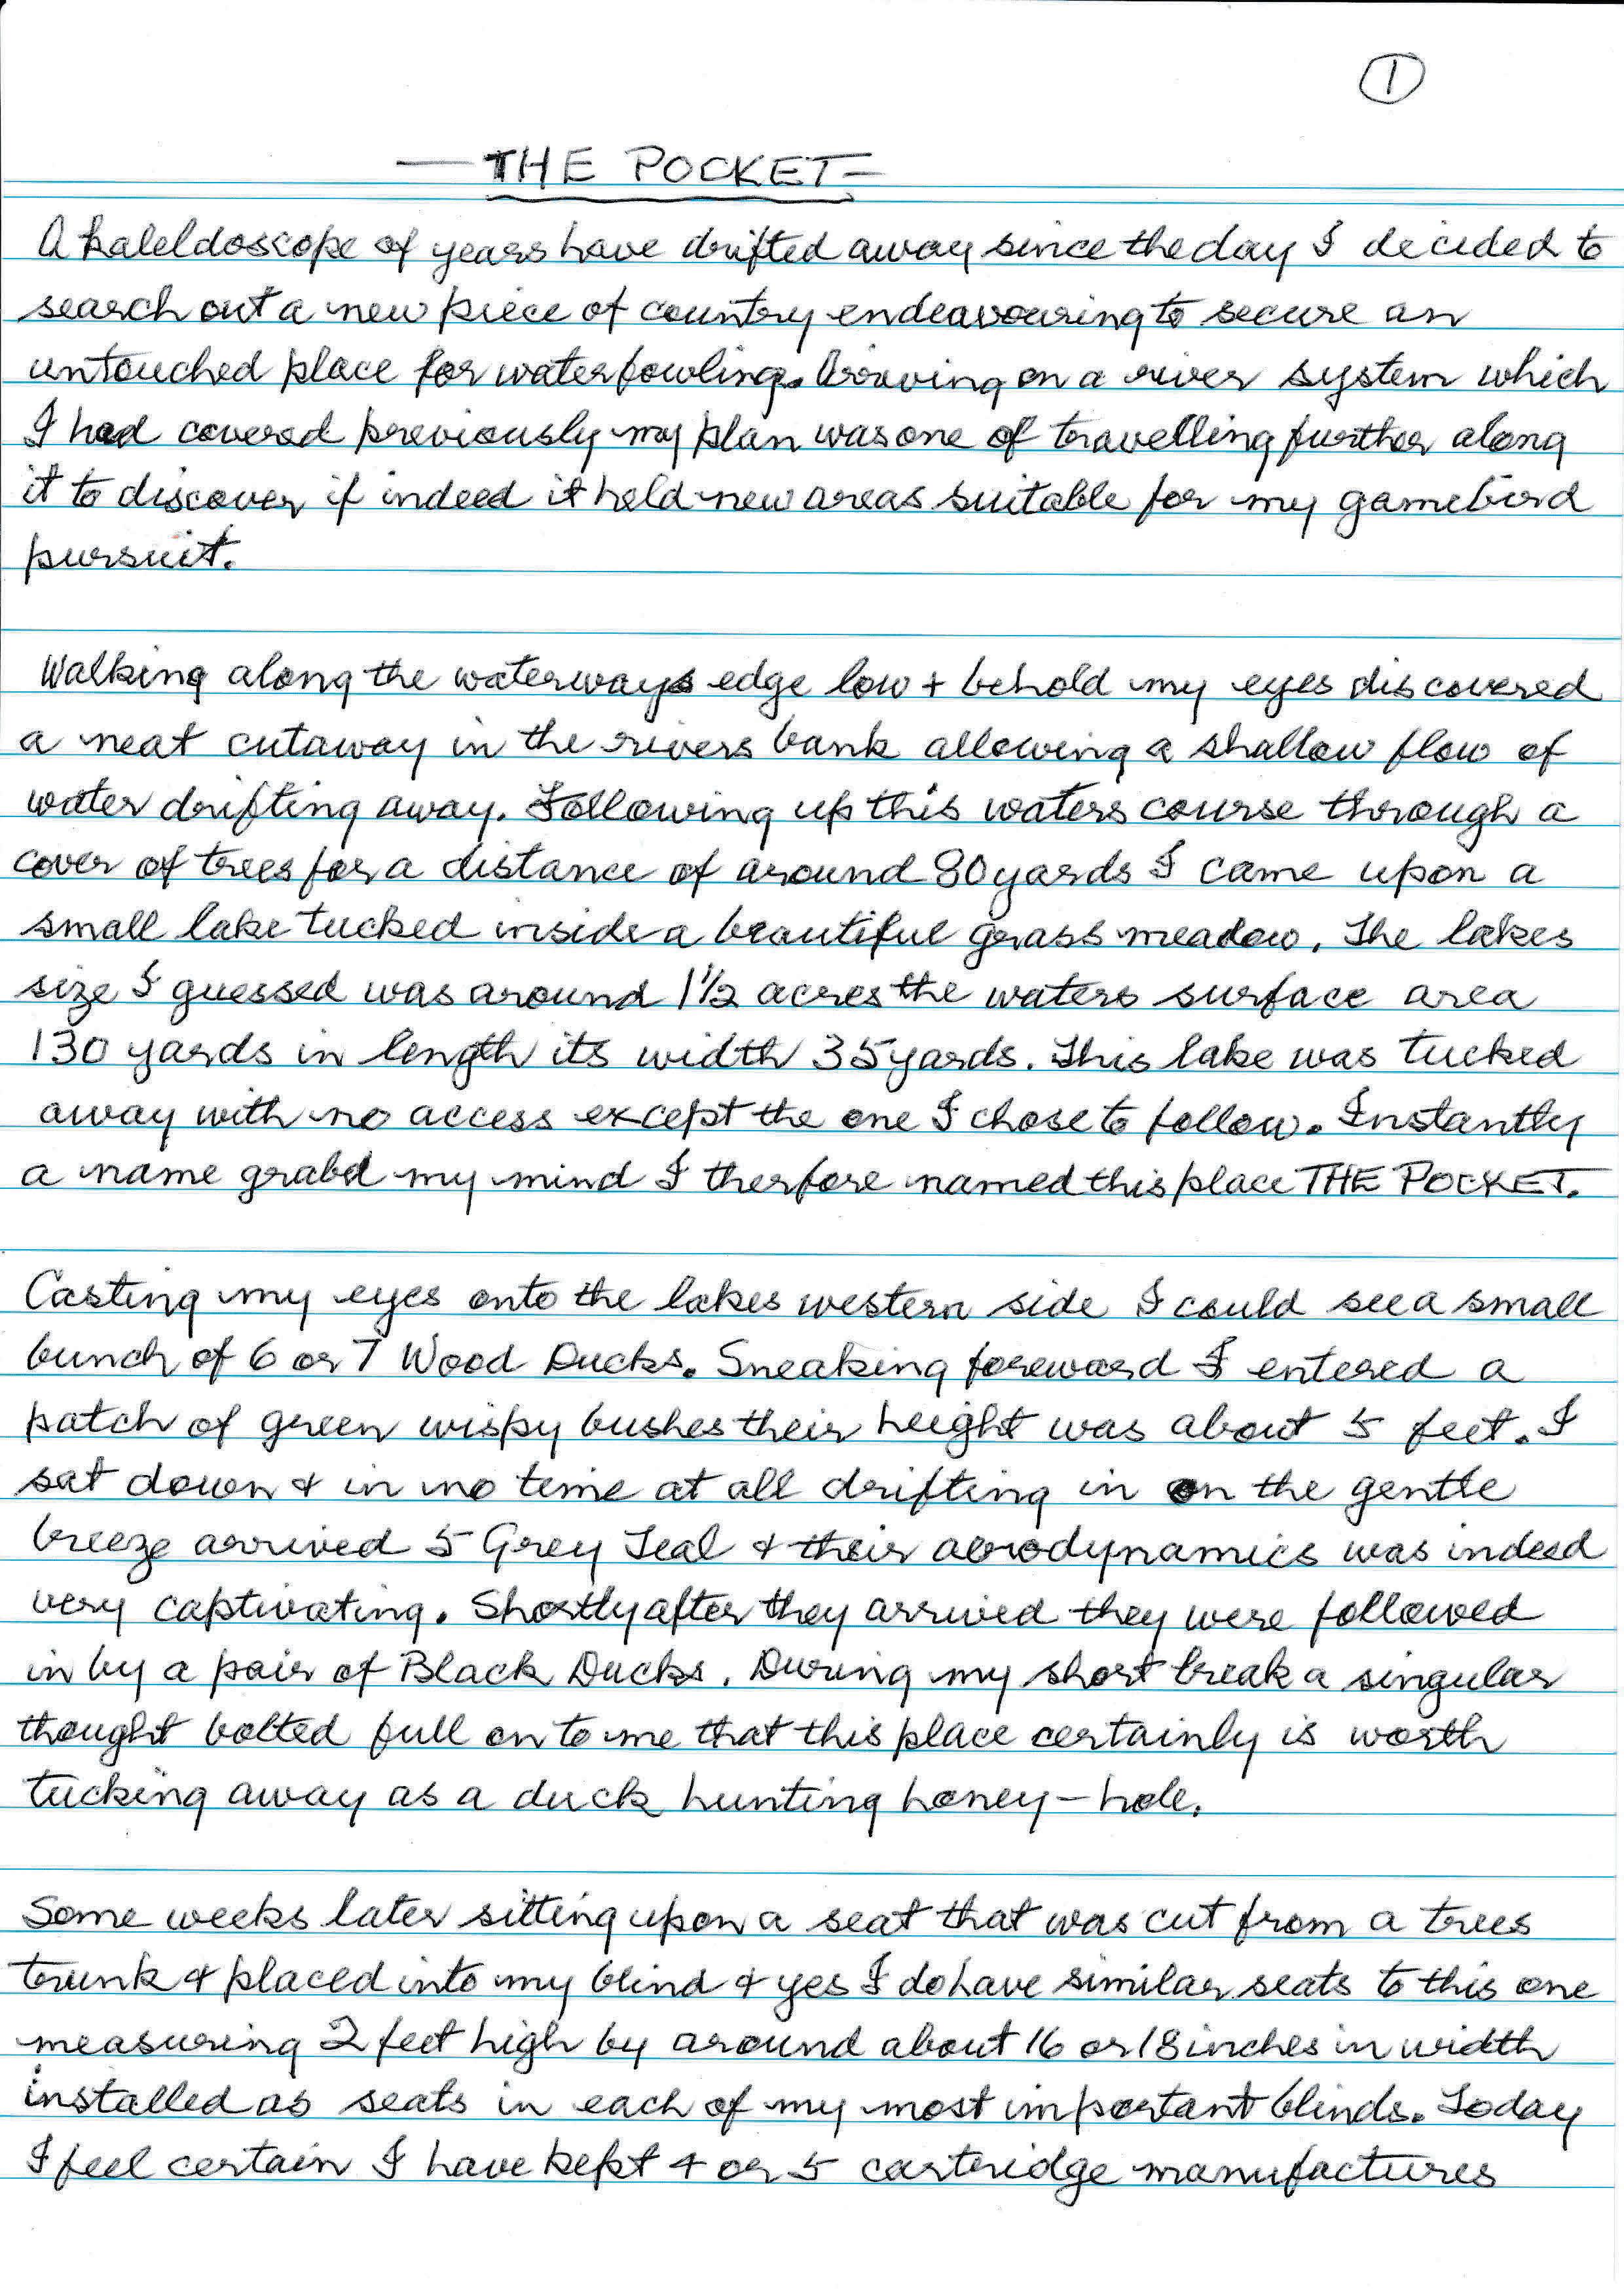 ①
— THE POCKET —
A kaleldoscope of years have drifted away since the day I decided to
search out a new piece of country endeavouring to secure an
untouched place for waterfowling. Arriving on a river system which
I had covered previously my plan was one of travelling further along
it to discover if indeed it held new areas suitable for my gamebird
pursuit.
Walking along the waterways edge low + behold my eyes discovered
a neat cutaway in the rivers bank allowing a shallow flow of
water drifting away. Following up this waters course through a
cover of trees for a distance of around 80 yards I came upon a
small lake tucked inside a beautiful grass meadow. The lakes
size I guessed was around 1½ acres the waters surface area
130 yards in length its width 35 yards. This lake was tucked
away with no access except the one I chose to follow. Instantly
a name grabd my mind I therfore named this place THE POCKET.
Casting my eyes onto the lakes western side I could see a small
bunch of 6 or 7 Wood Ducks. Sneaking foreward I entered a
patch of green wispy bushes their height was about 5 feet. I
sat down & in no time at all drifting in on the gentle
breeze arrived 5 Grey Teal & their aerodynamics was indeed
very captivating. Shortly after they arrived they were followed
in by a pair of Black Ducks. During my short break a singular
thought bolted full on to me that this place certainly is worth
tucking away as a duck hunting honey-hole.
Some weeks later sitting upon a seat that was cut from a trees
trunk & placed into my blind & yes I do have similar seats to this one
measuring 2 feet high by around about 16 or 18 inches in width
installed as seats in each of my most important blinds. Today
I feel certain I have kept 4 or 5 cartridge manufactures